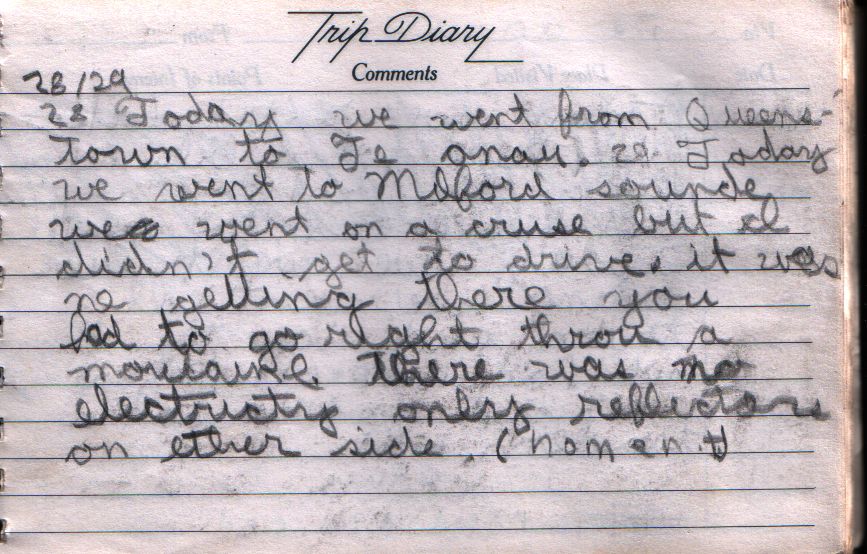 Trip Diary
Comments
28/29
28 Today we went from Queens-
town to Te anau. 29. Today
we went to Milford sounde
we went on a cruse but I
didn't get to drive. it was
ne getting there you
had to go right throu a
moutaine. there was no
electructy onley reflectors
on ether side.